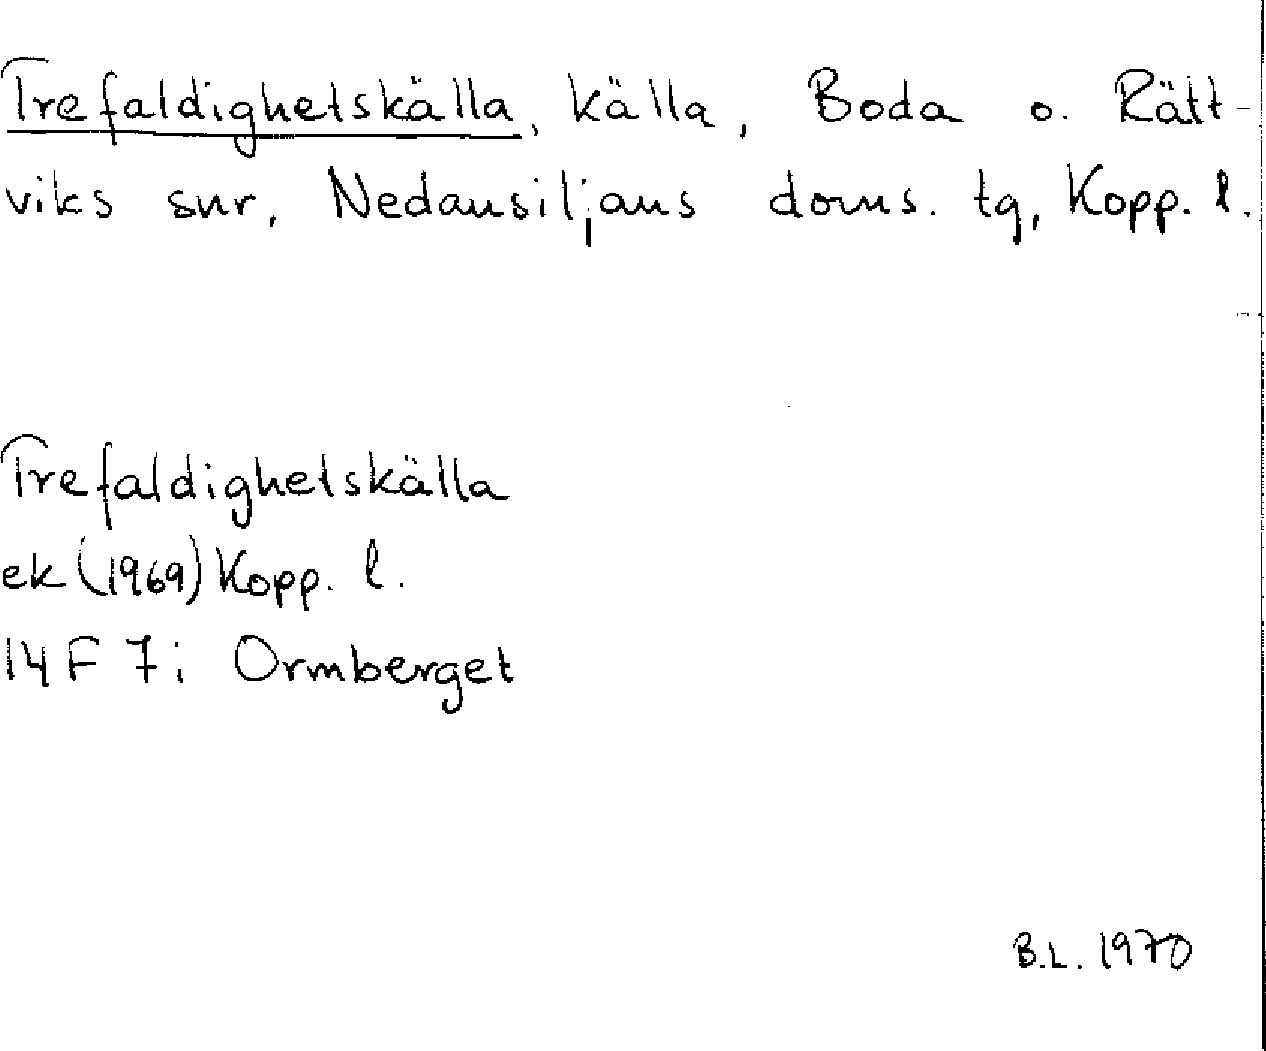 Trefaldighetskälla, källa, Boda o. Rätt-
viks snr, Nedansiljans doms. tg, Kopp. l.
Trefaldighetskälla
ek (1969) Kopp. l.
14 F 7i Ormberget
B.L. 1970